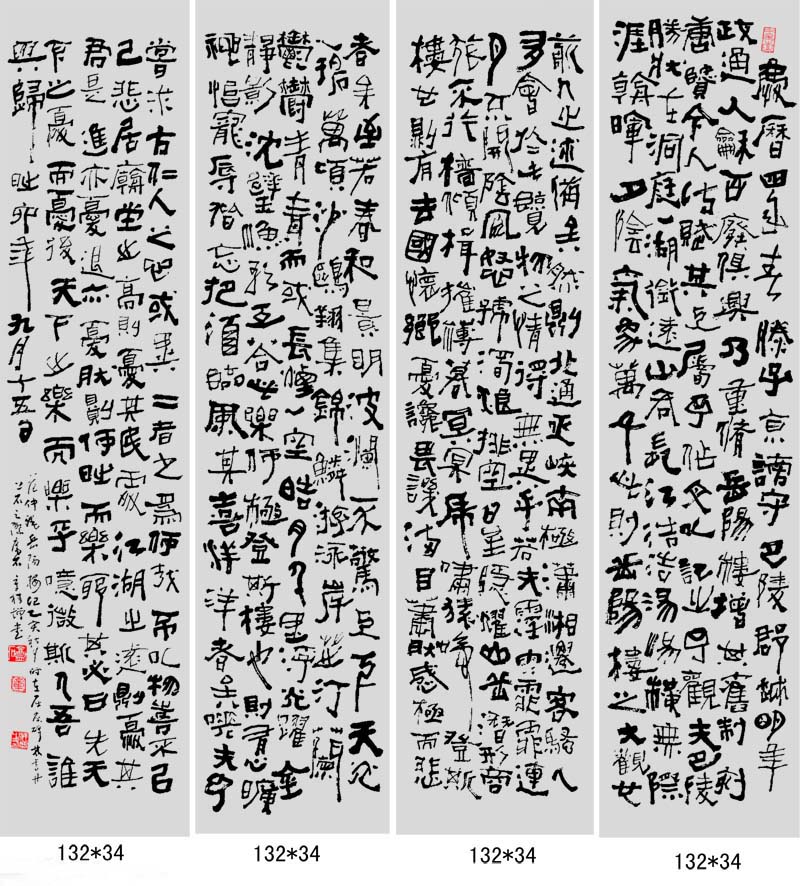 慶曆四年春滕子京謫守巴陵郡越明年
政通人龢百廢俱興乃重脩岳陽樓增其舊制刻
唐賢今人詩賦其上屬予作文以記之予觀夫巴陵
勝狀在洞庭一湖銜遠山吞長江浩浩湯湯橫無際
涯朝暉夕陰氣象萬千此則岳陽樓之大觀也
前人之述備矣然則北通巫峽南極瀟湘遷客騷人
多會於此覽物之情得無異乎若夫霪雨霏霏連
月不開陰風怒號濁浪排空日星隱燿山岳潛形商
旅不行檣傾楫摧薄暮冥冥虎嘯猿啼登斯
樓也則有去國懷鄉憂讒畏譏滿目蕭然感極而悲
者矣至若春和景明波瀾不驚上下天光
一碧萬頃沙鷗翔集錦鱗游泳岸芷汀蘭
鬱鬱青青而或長煙一空皓月千里浮光躍金
靜影沈璧漁歌互答此樂何極登斯樓也則有心曠
神怡寵辱皆忘把酒臨風其喜洋洋者矣嗟夫予
嘗求古仁人之心或異二者之為何哉不以物喜不以
己悲居廟堂之高則憂其民處江湖之遠則憂其
君是進亦憂退亦憂然則何時而樂耶其必曰先天
下之憂而憂後天下之樂而樂乎噫微斯人吾誰
與歸時卯年九月十五日
范仲淹岳陽樓記
132*34
132*34
132*34
132*34